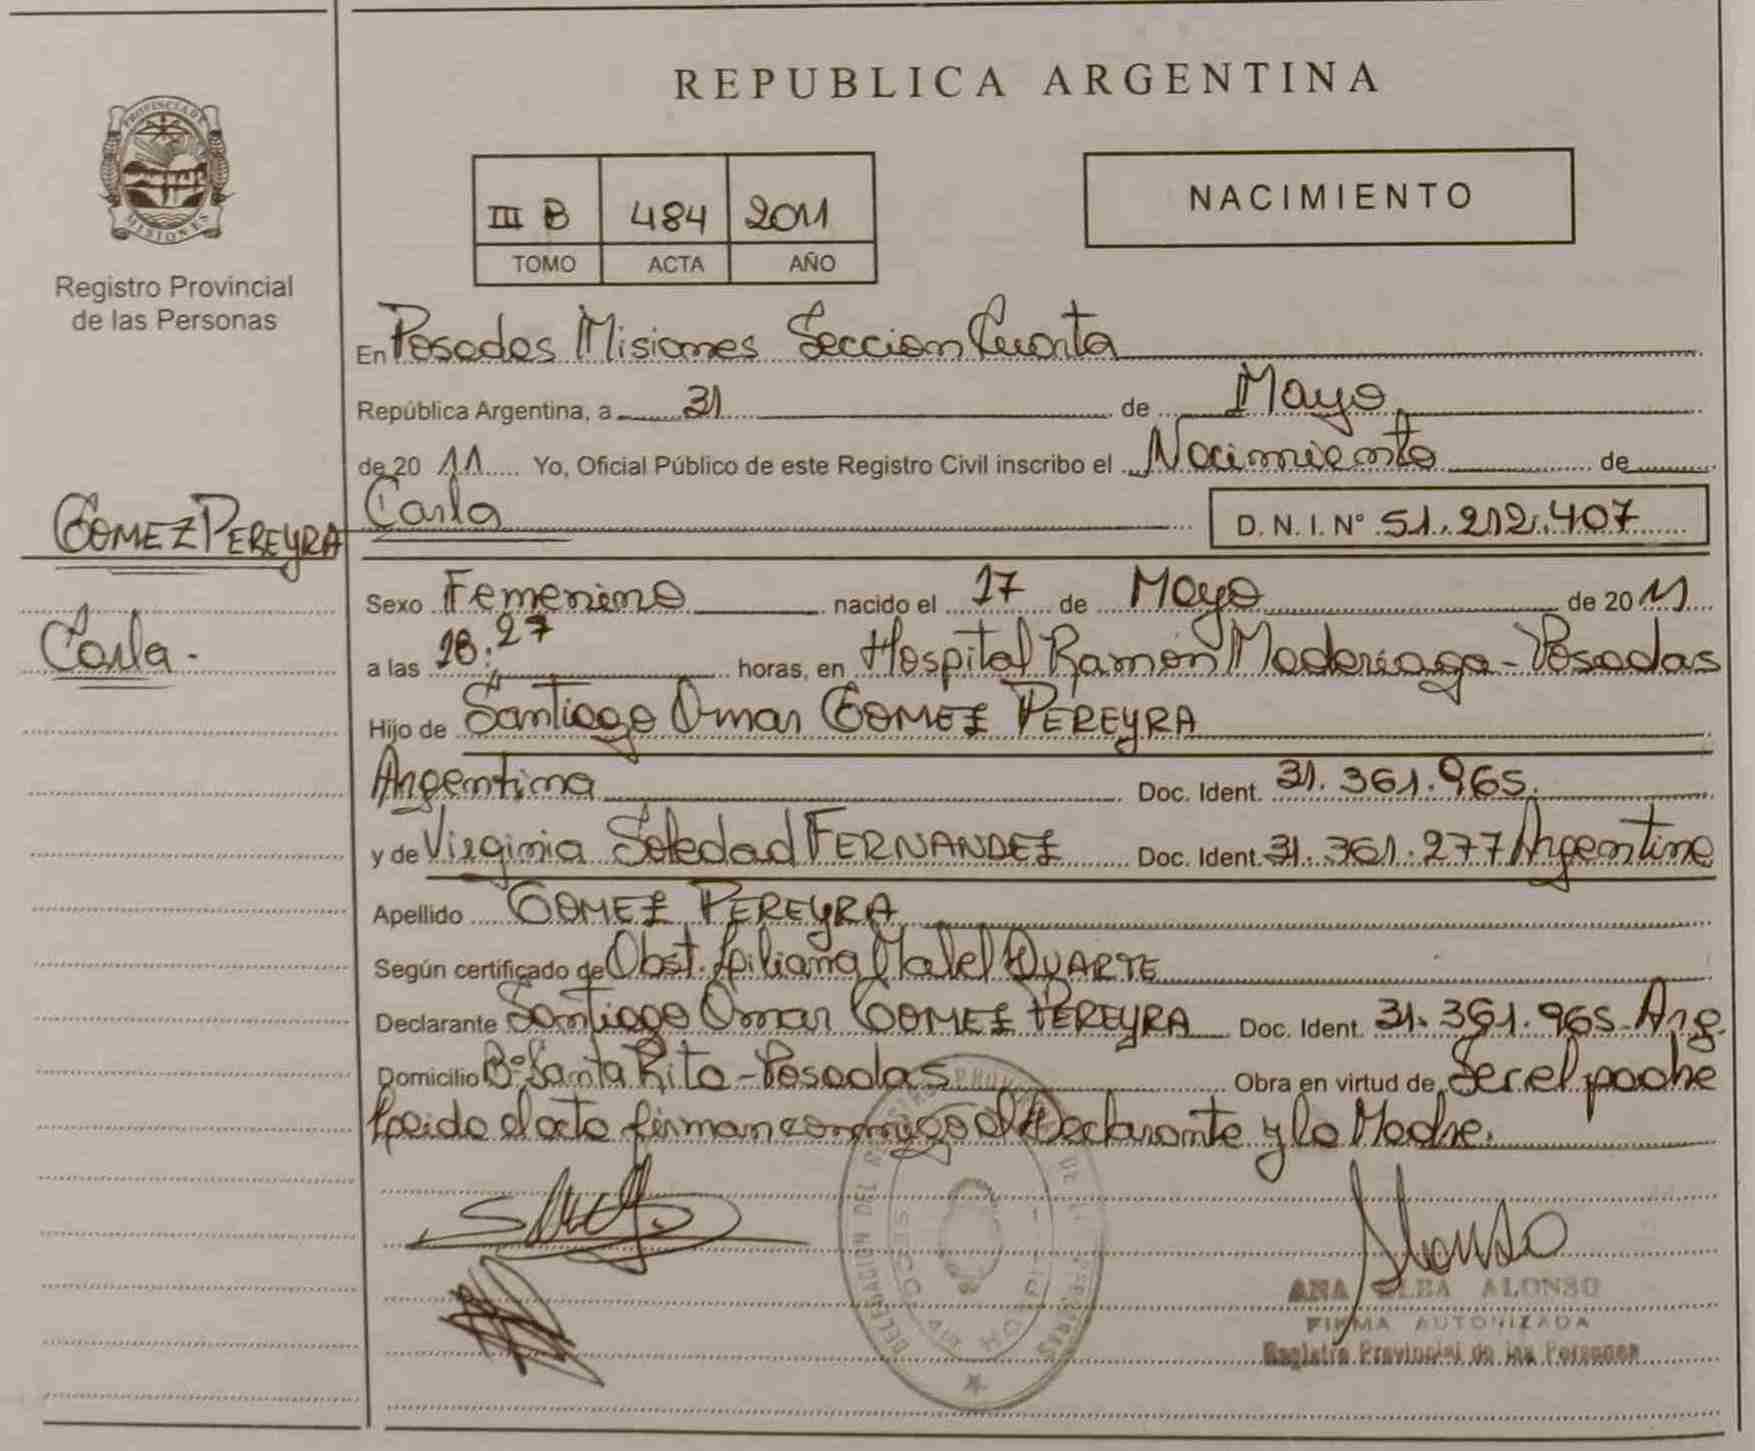 PROVINCIA DE
MISIONES
Registro Provincial
de las Personas
GOMEZ PEREYRA
Carla.
REPUBLICA ARGENTINA
III B 484 2011
TOMO ACTA AÑO
NACIMIENTO
En Posadas Misiones Seccion Cuarta
República Argentina, a 31 de Mayo
de 20 11 Yo, Oficial Público de este Registro Civil inscribo el Nacimiento de
Carla D. N. I. N° 51.212.407
Sexo Femenino nacido el 17 de Mayo de 20 11
a las 18:27 horas, en Hospital Ramón Madariaga - Posadas
Hijo de Santiago Omar GOMEZ PEREYRA
Argentina Doc. Ident. 31.361.965.
y de Virginia Soledad FERNANDEZ Doc. Ident. 31.361.277 Argentina
Apellido GOMEZ PEREYRA
Según certificado de Obst. Liliana Mabel DUARTE
Declarante Santiago Omar GOMEZ PEREYRA Doc. Ident. 31.361.965 Arg.
Domicilio B° Santa Rita - Posadas Obra en virtud de Ser el padre
Leida el acta firman conmigo el Declarante y la Madre.
DELEGACION DEL
ANA ALBA ALONSO
FIRMA AUTORIZADA
Registro Provincial de las Personas